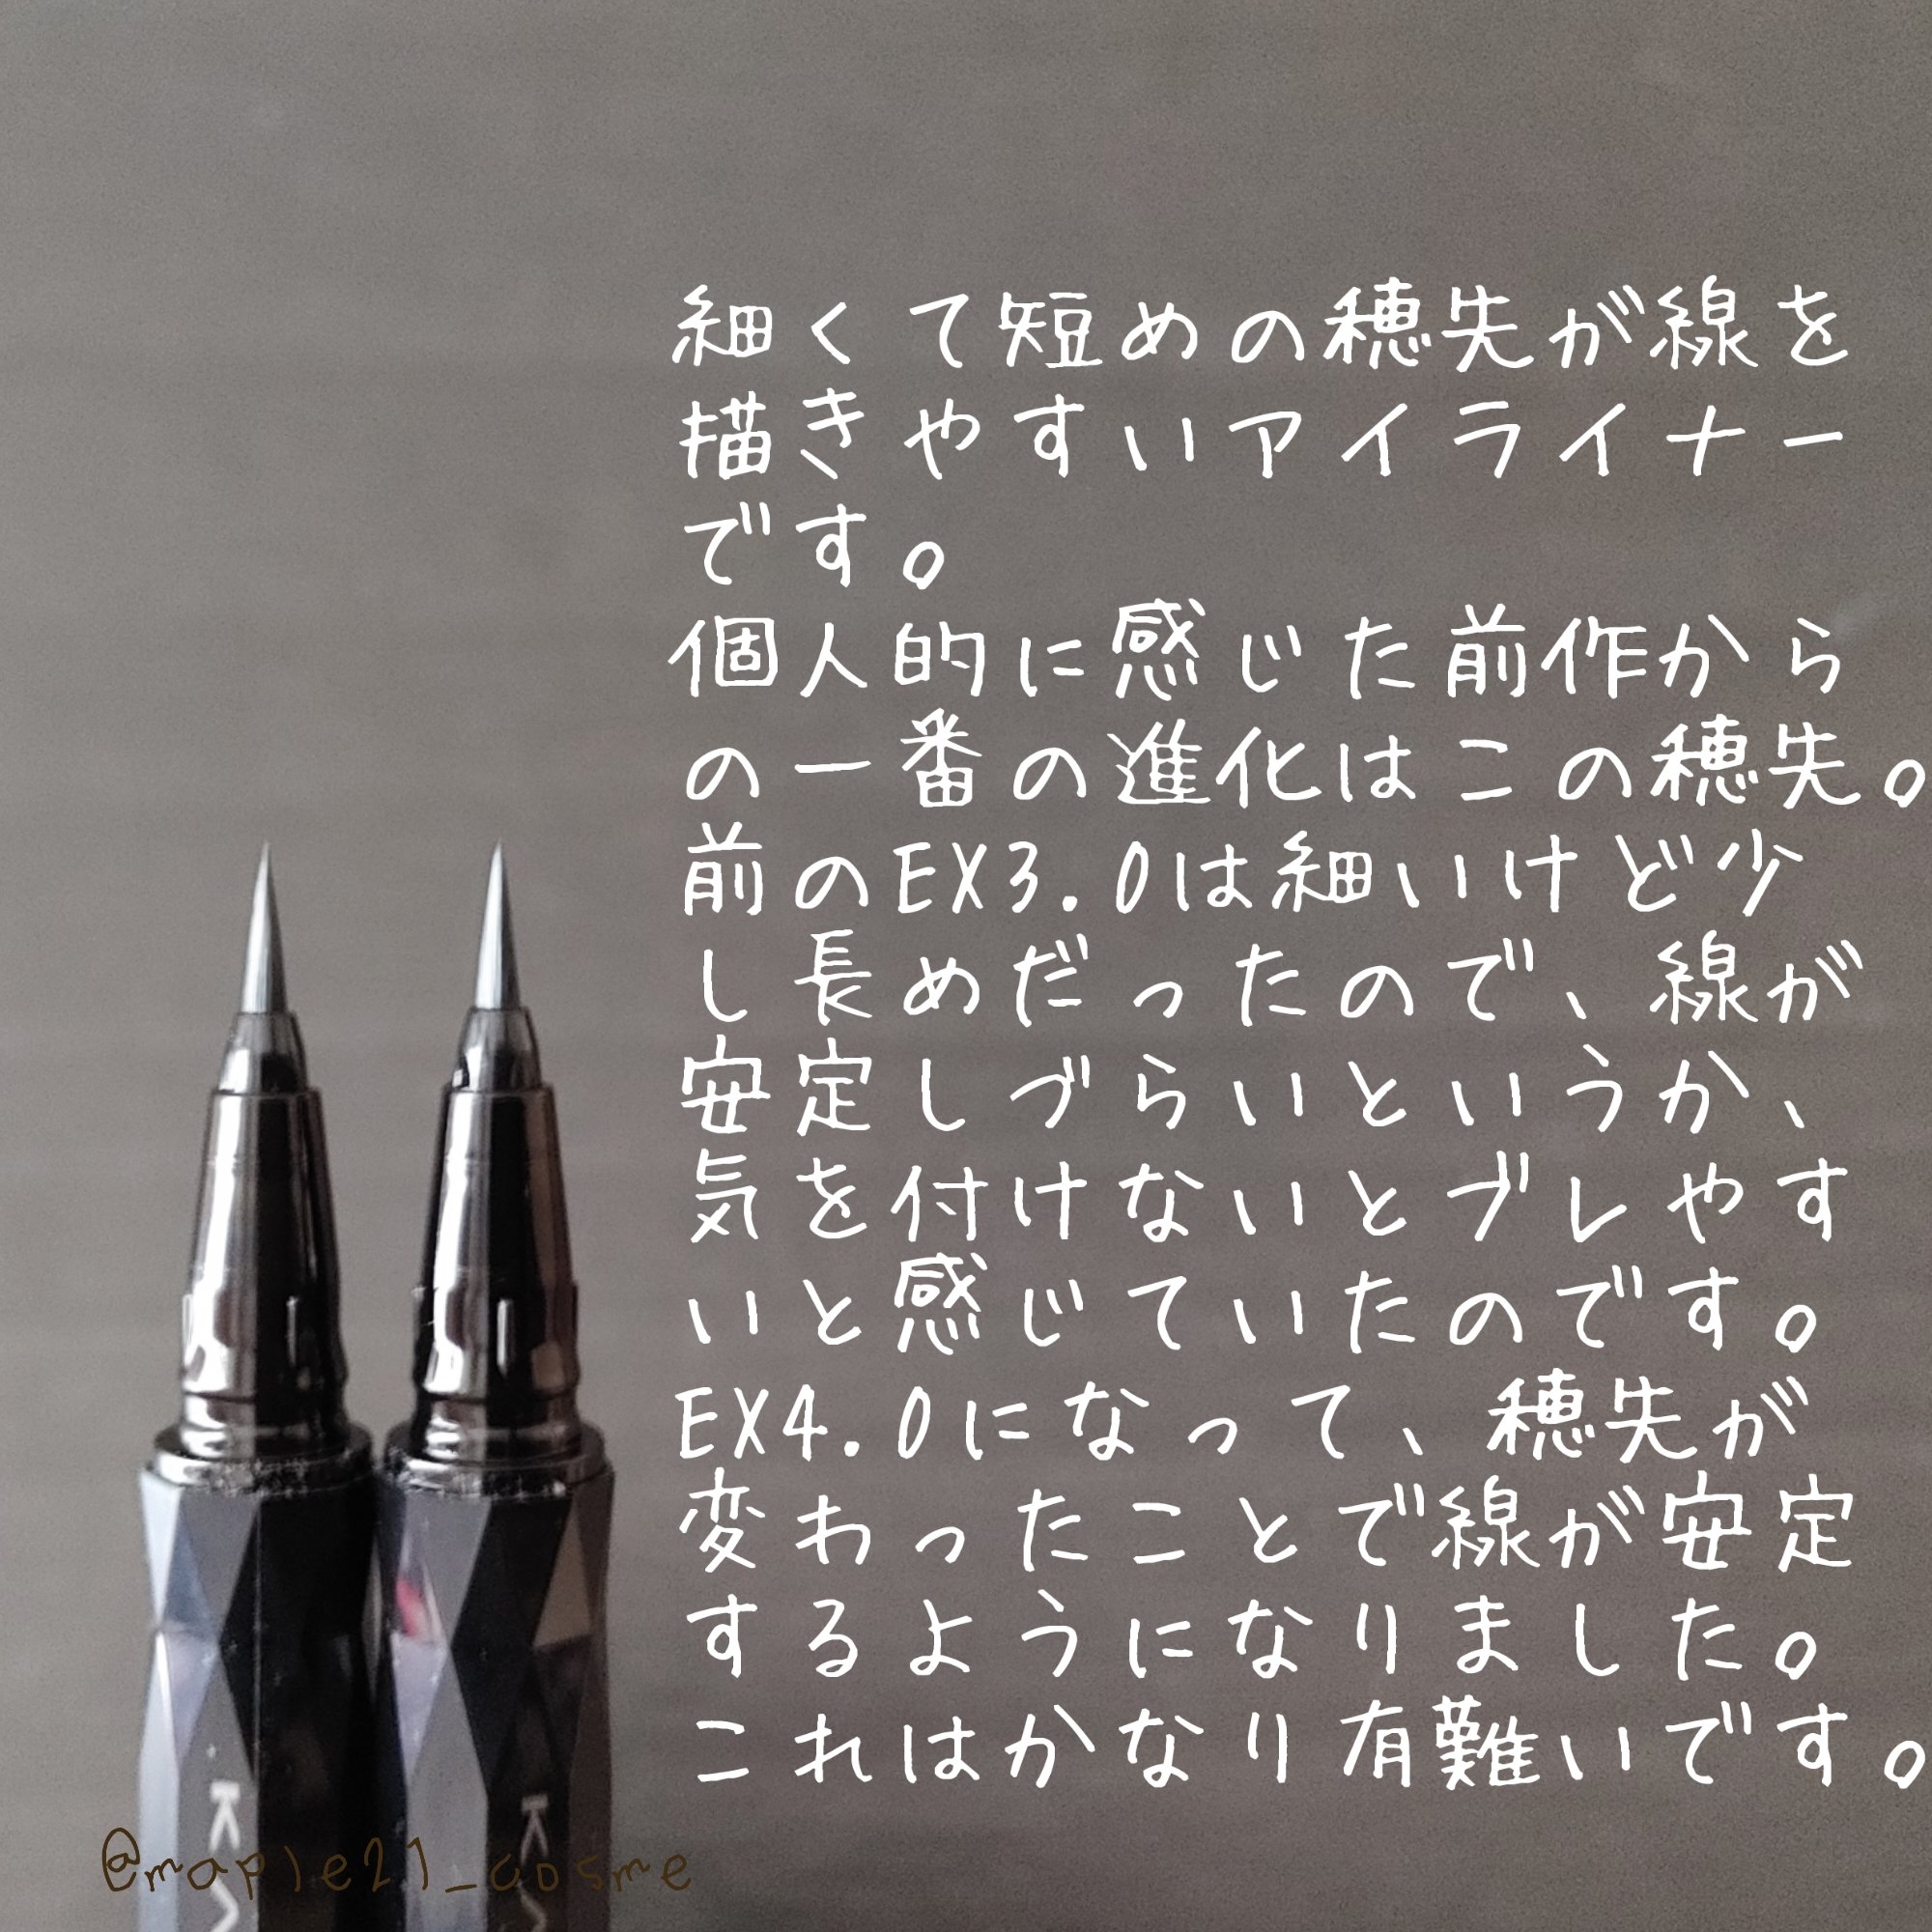 細くて短めの穂先が線を
描きやすいアイライナー
です。
個人的に感じた前作から
の一番の進化はこの穂先。
前のEX3.0は細いけど少
し長めだったので、線が
安定しづらいというか、
気を付けないとブレやす
いと感じていたのです。
EX4.0になって、穂先が
変わったことで線が安定
するようになりました。
これはかなり有難いです。
@maple21_cosme